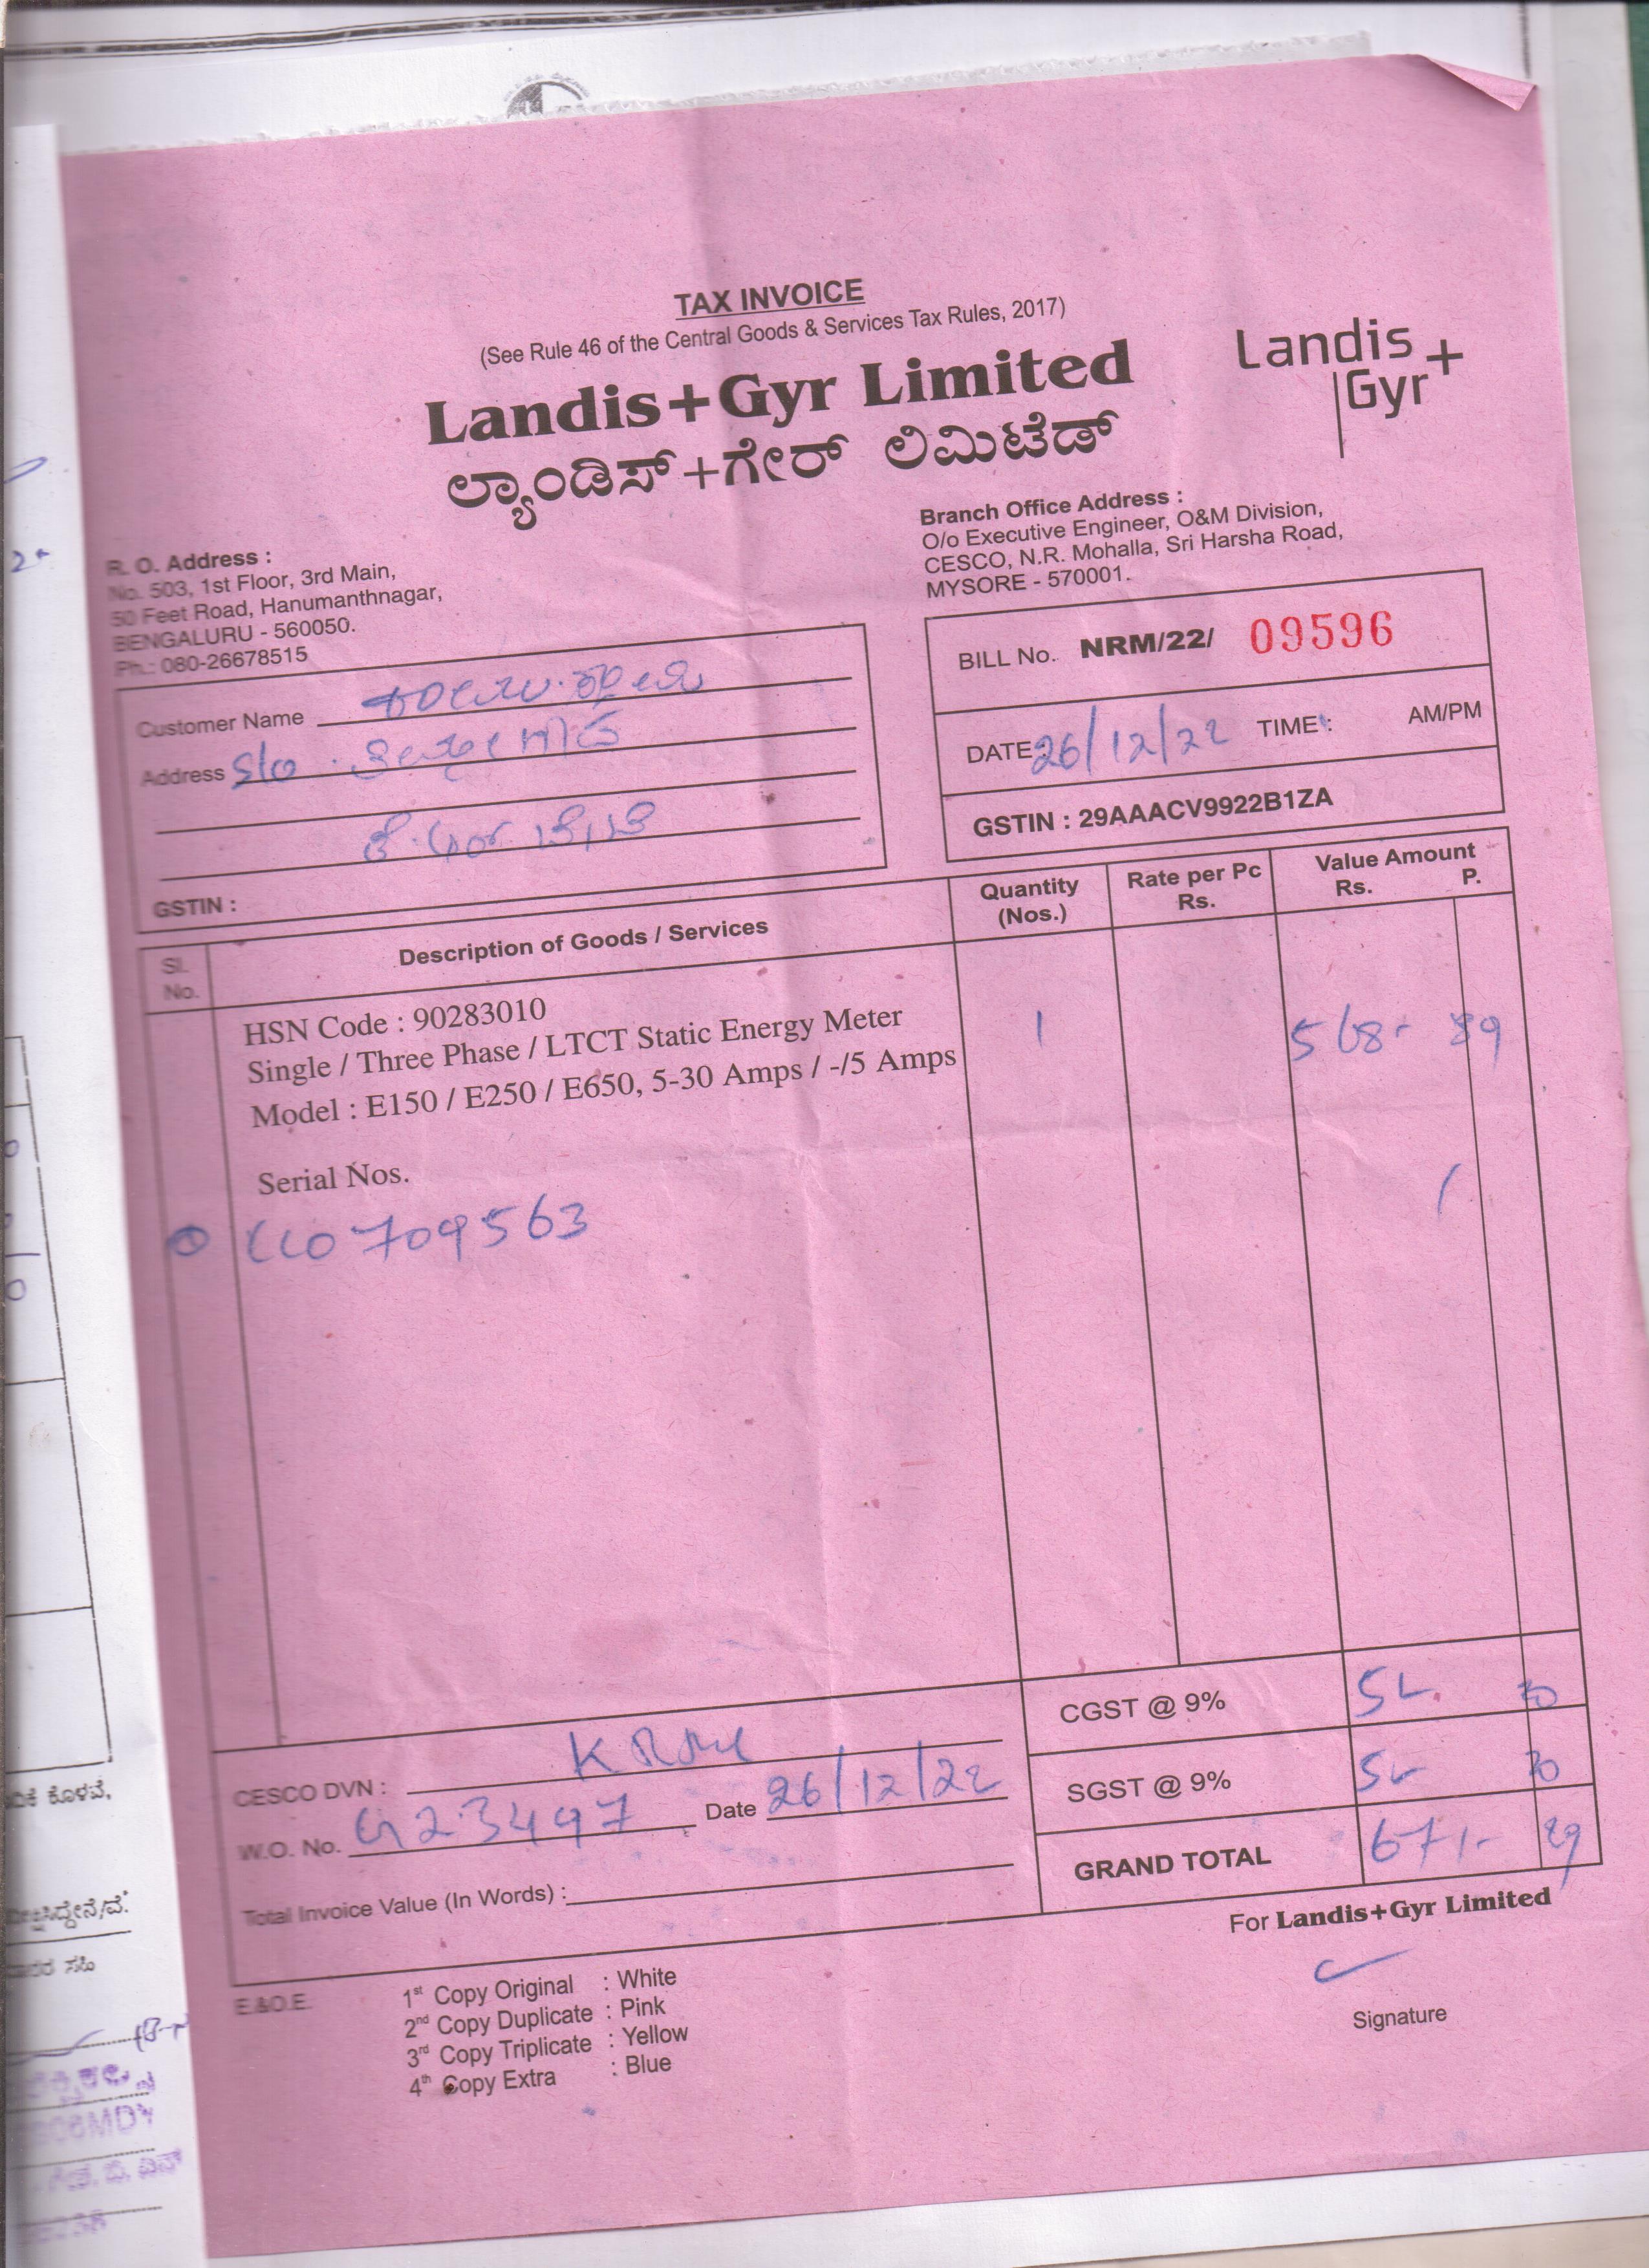 TAX INVOICE
(See Rule 46 of the Central Goods & Services Tax Rules, 2017)
Landis+Gyr Limited
ಲ್ಯಾಂಡಿಸ್+ಗೇರ್ ಲಿಮಿಟೆಡ್
Landis
Gyr+
R. O. Address :
No. 503, 1st Floor, 3rd Main,
50 Feet Road, Hanumanthnagar,
BENGALURU - 560050.
Ph.: 080-26678515
Branch Office Address :
O/o Executive Engineer, O&M Division,
CESCO, N.R. Mohalla, Sri Harsha Road,
MYSORE - 570001.
Customer Name
Address S/o
GSTIN :
BILL No. NRM/22/ 09596
DATE 26/12/22 TIME : AM/PM
GSTIN : 29AAACV9922B1ZA
Sl. No. Description of Goods / Services Quantity (Nos.) Rate per Pc Rs. Value Amount Rs. P.
HSN Code : 90283010
Single / Three Phase / LTCT Static Energy Meter 1 568- 89
Model : E150 / E250 / E650, 5-30 Amps / -/5 Amps
Serial Nos.
709563
CGST @ 9%
SGST @ 9%
GRAND TOTAL 671-
CESCO DVN :
W.O. No. G23497 Date 26/12/22
Total Invoice Value (In Words) :
For Landis+Gyr Limited
Signature
E.&O.E.
1st Copy Original : White
2nd Copy Duplicate : Pink
3rd Copy Triplicate : Yellow
4th Copy Extra : Blue
ಕೊಳವೆ,
ಸಹಿ